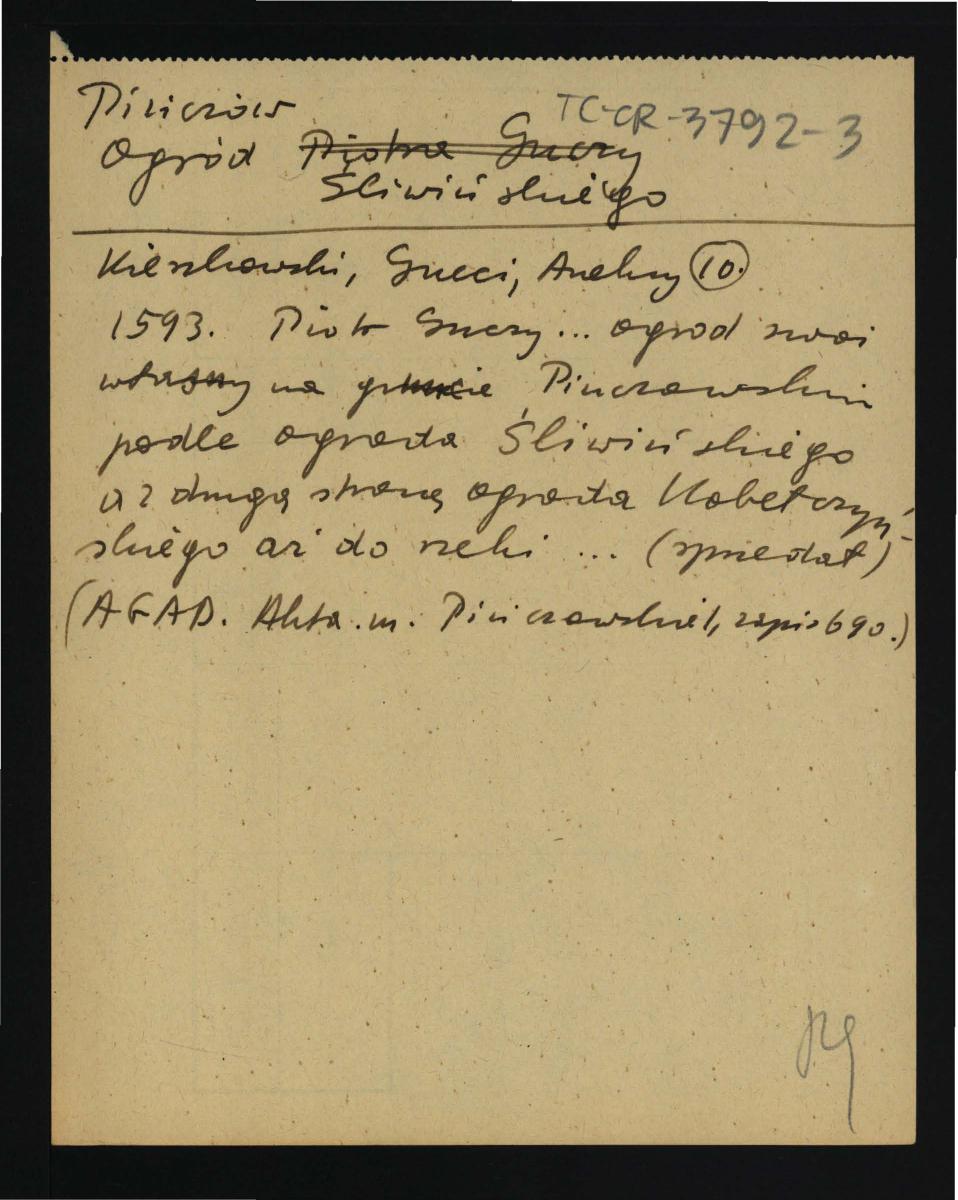 Pińczów
TC-CR-3792-3
Ogród Piotra Guczy
Śliwińskiego
Kieszkowski, Gucci, Aneksy 10.
1593. Piotr Guczy... ogrod swoi
własny na gruncie Pinczowskim
podle ogroda Śliwińskiego
a z drugą stroną ogroda Kobetczyń-
skiego aż do rzeki ... (sprzedał)
(AGAD. Akta. m. Pińczowskie 1, zapis 690.)